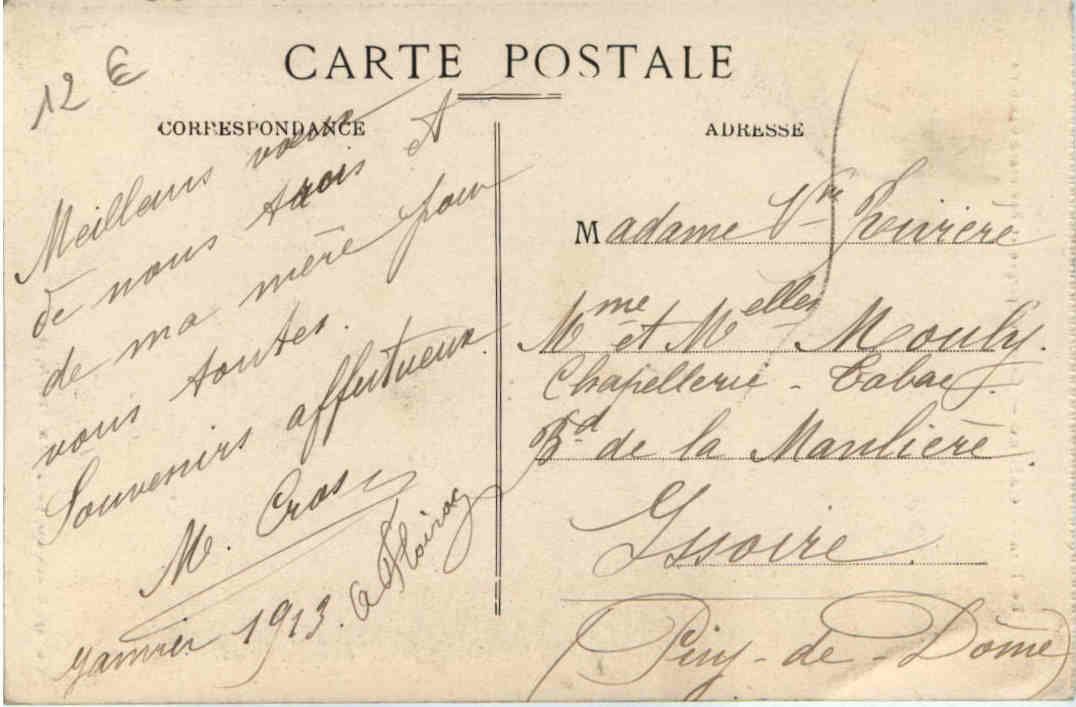 12 €
CARTE POSTALE
CORRESPONDANCE
Meilleurs vœux
de nous trois et
de ma mère pour
vous toutes.
Souvenirs affectueux.
M. Cros
Janvier 1913. à Floirac
ADRESSE
Madame Vve
Mme et Melles Mouly.
Chapellerie - Tabac.
Bd de la Manlière.
Issoire.
(Puy-de-Dôme)